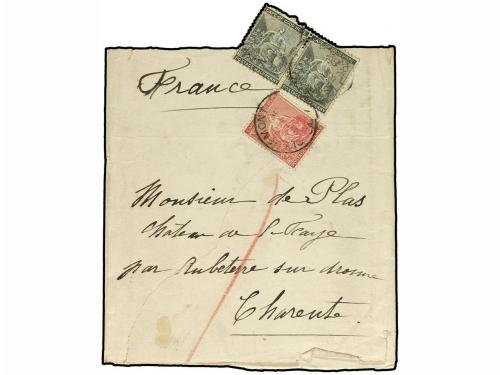 France
Monsieur de Plas
Château de St Faye
par Aubeterre sur dronne
Charente.